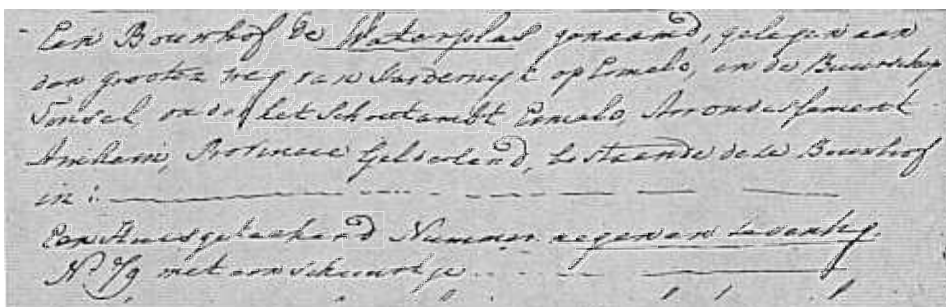 Een Bouwhof de Waterplas genaamd, gelegen aan
den grooten weg van Harderwijk op Ermelo, in de Buurschap
Tonsel, onder het Schoutambt Ermelo, Arrondissement
Arnhem, Provincie Gelderland, bestaande deze Bouwhof
in:
Een Huis geteekend Nummer negen en zeventig
No 79 met een schuurtje